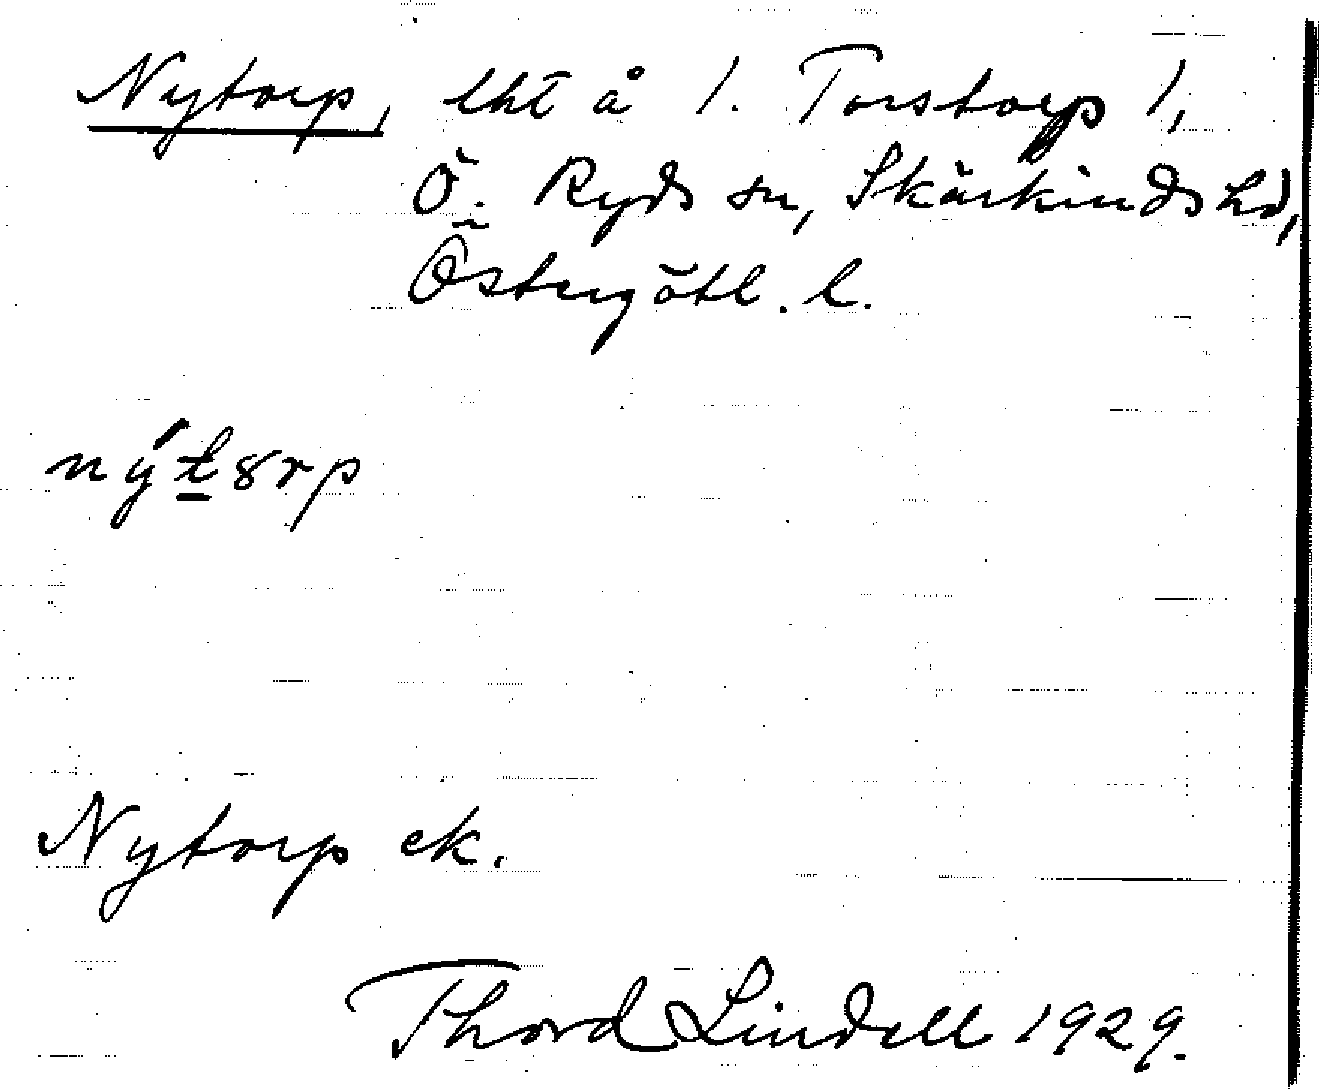 Nytorp, lht å 1. Torstorp 1,
Ö. Ryds sn, Skärkinds hd,
Östergötl. l.
nýt̲8rp
Nytorp ek.
Thord Lindell 1929.